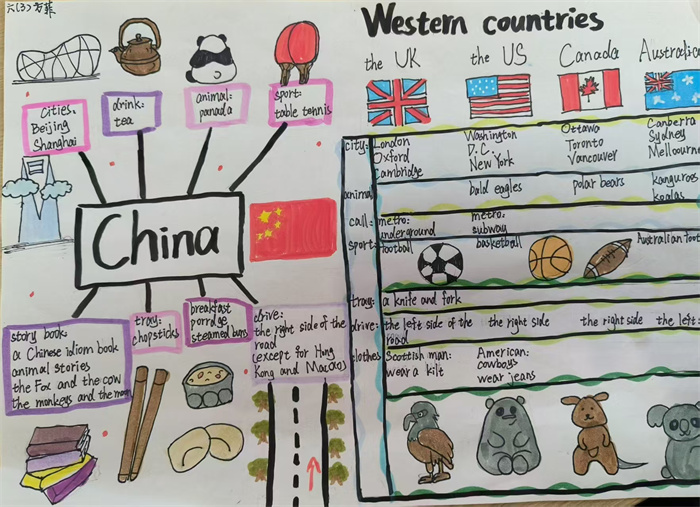 六(3)方菲
Western countries
the UK
the US
Canada
Australica
Cities:
Beijing
Shanghai
drink:
tea
animal:
panada
sport:
table tennis
China
story book:
a Chinese idiom book
animal stories
the Fox and the cow
the monkeys and the moon
tray:
chopsticks
breakfast
porridge
steamed buns
drive:
the right side of the
road
(except for Hong
Kong and Macao)
city:
London
Oxford
Cambridge
Washington
D.C.
New York
Ottawa
Toronto
Vancouver
Canberra
Sydney
Mellourn
anima
bald eagles
polar bears
kanguroos
koalas
call:
metro:
underground
metro:
subway
sport:
football
basketball
Australian foot
tray:
a knife and fork
drive:
the left side of the
road
the right side
the right side
the left
clothes
Scottish man:
wear a kilt
American:
cowboys
wear jeans